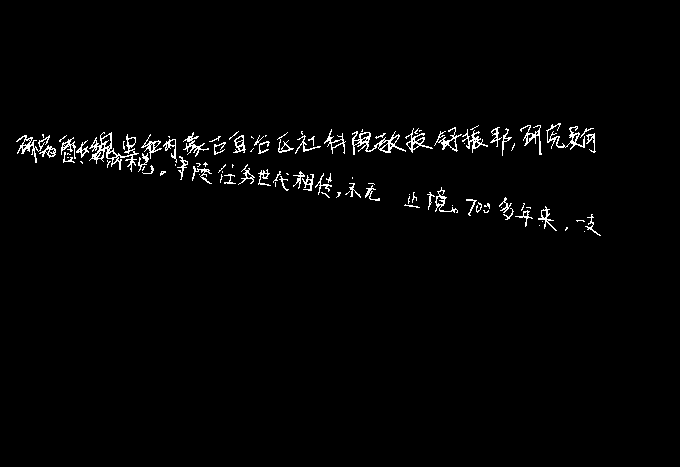 研究暨长编,忠和内蒙古自治区社科院教授舒振邦,研究员何
济税。守陵任务世代相传,永无 止境。700多年来,一支